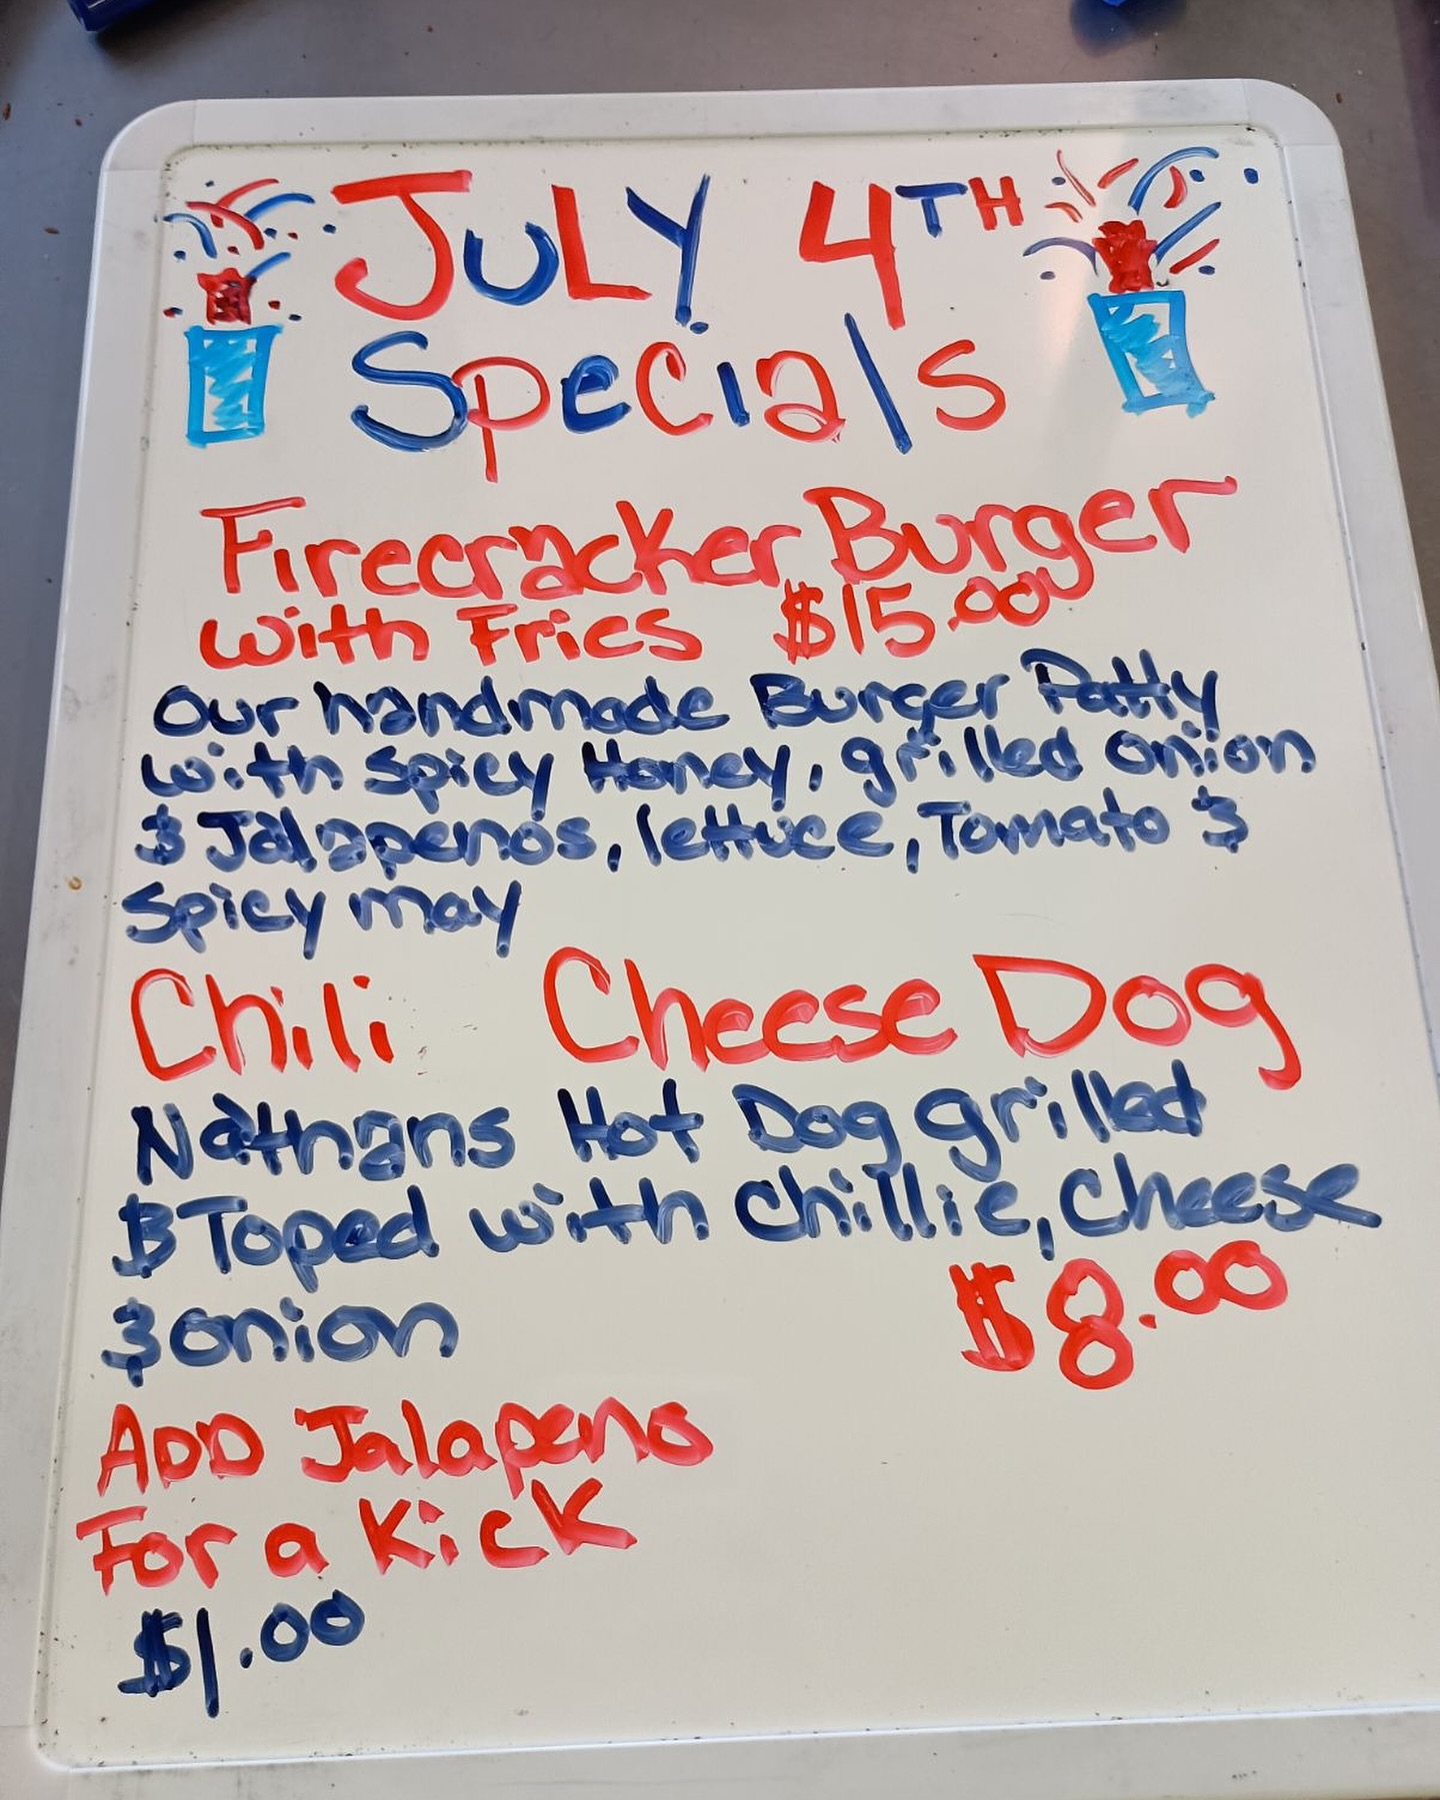 JULY 4TH
Specials
Firecracker Burger
with Fries $15.00
Our handmade Burger Patty
with Spicy Honey, grilled onion
& Jalapenos, lettuce, Tomato &
Spicy may
Chili Cheese Dog
Nathans Hot Dog grilled
& Toped with Chillie, Cheese
& onion $8.00
ADD Jalapeno
For a Kick
$1.00